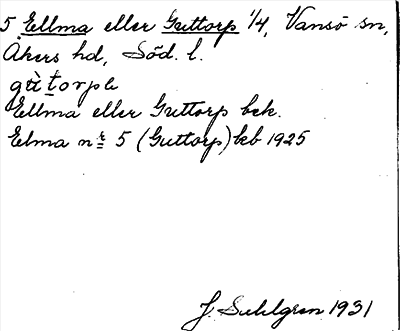 5 Ellma eller Guttorp 1/4, Vansö sn,
Åkers hd, Söd. l.
gùtorp
Ellma eller Guttorp bek.
Elma nr 5 (Guttorp) kb 1925
J. Sahlgren 1931